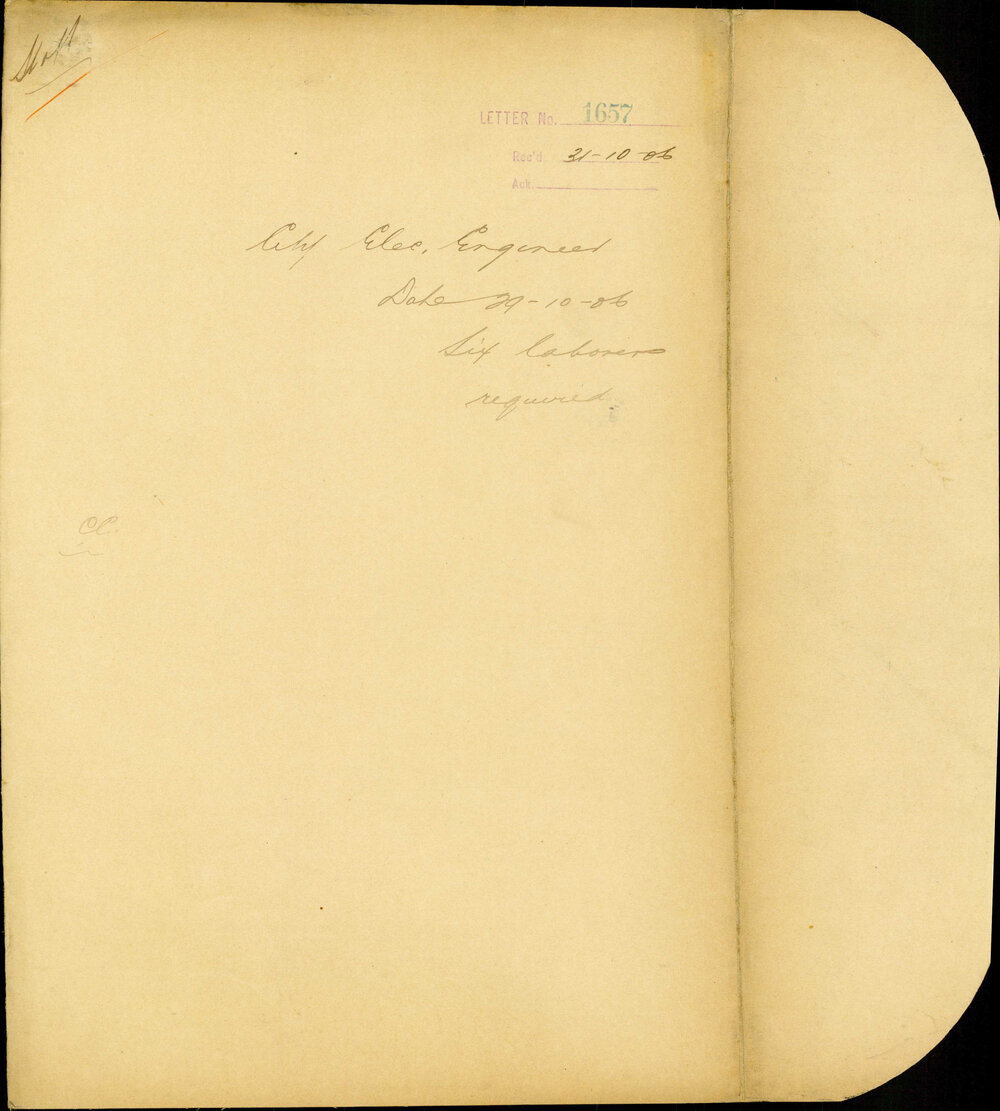 LETTER No. 1657
Rec'd 31-10-06
Ack.
City Elec. Engineer
Date 29-10-06
Six laborers
required
CC.